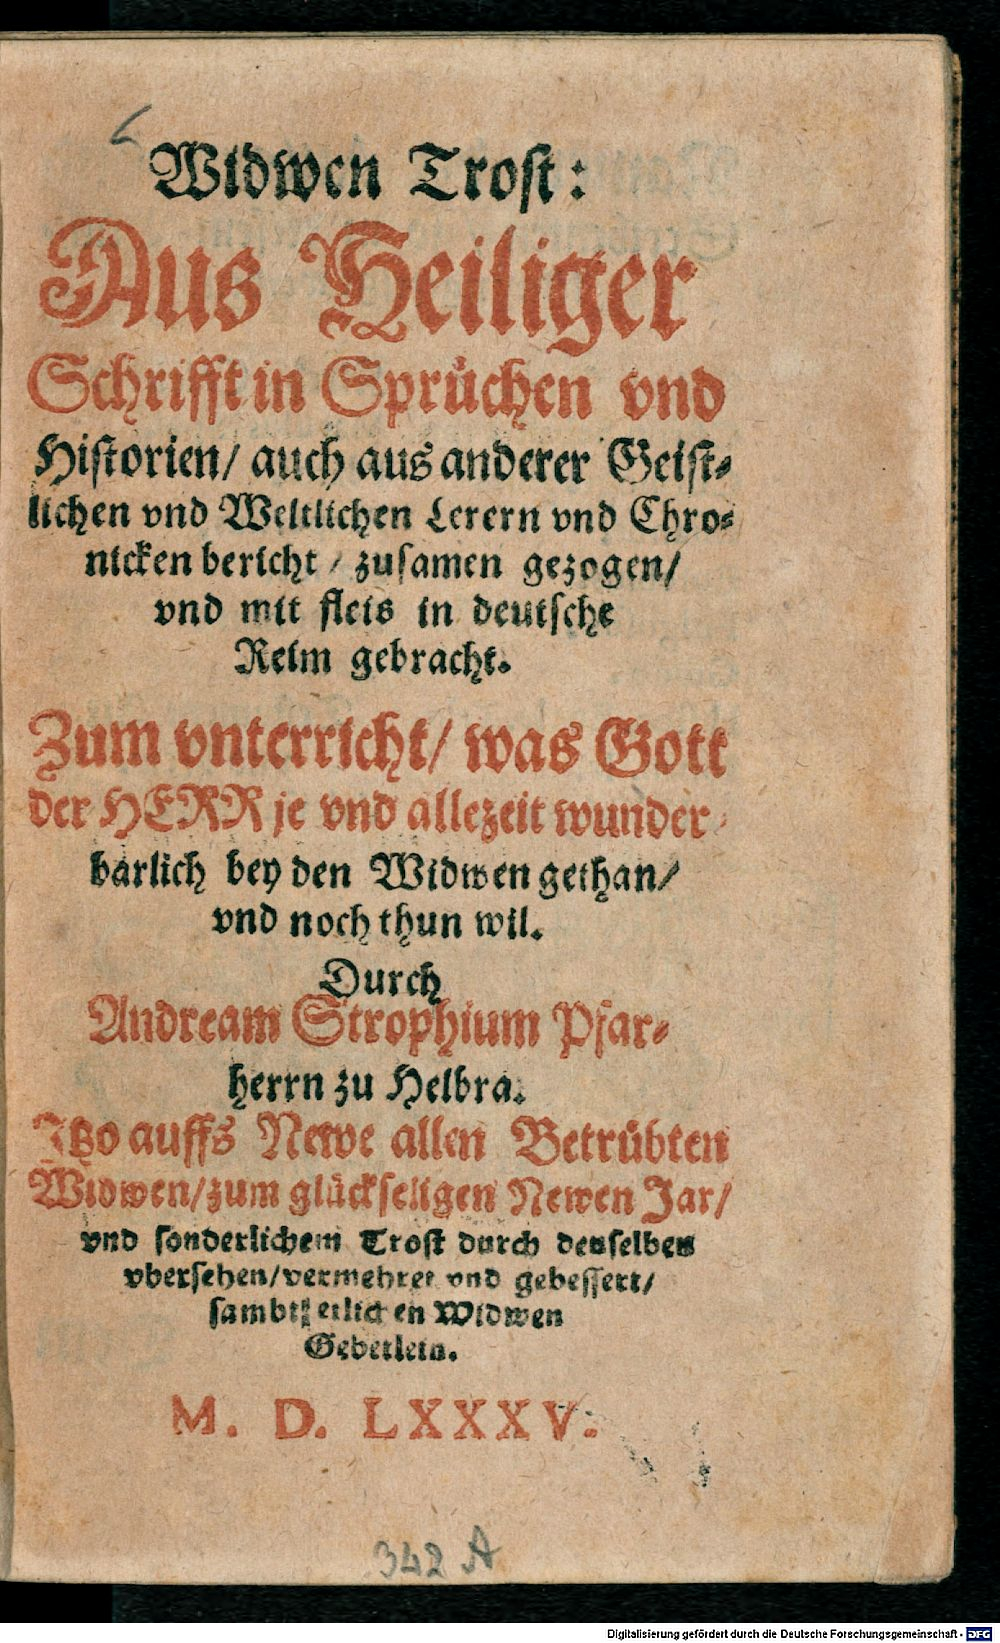 Widwen Trost:
Aus Heiliger
Schrifft in Sprüchen vnd
Historien/ auch aus anderer Geist⸗
lichen vnd Weltlichen Lerern vnd Chro⸗
nicken bericht/ zusamen gezogen/
vnd mit fleis in deutsche
Reim gebracht.
Zum vnterricht/ was Gott
der HERR je vnd allezeit wunder⸗
barlich bey den Widwen gethan/
vnd noch thun wil.
Durch
Andream Strophium Pfar⸗
herrn zu Helbra.
Itzo auffs Newe allen Betrübten
Widwen/ zum glückseligen Newen Jar/
vnd sonderlichem Trost durch denselben
vbersehen/ vermehret vnd gebessert/
sambt etlichen Widwen
Gebetlein.
M. D. LXXXV.
342 A
Digitalisierung gefördert durch die Deutsche Forschungsgemeinschaft - DFG